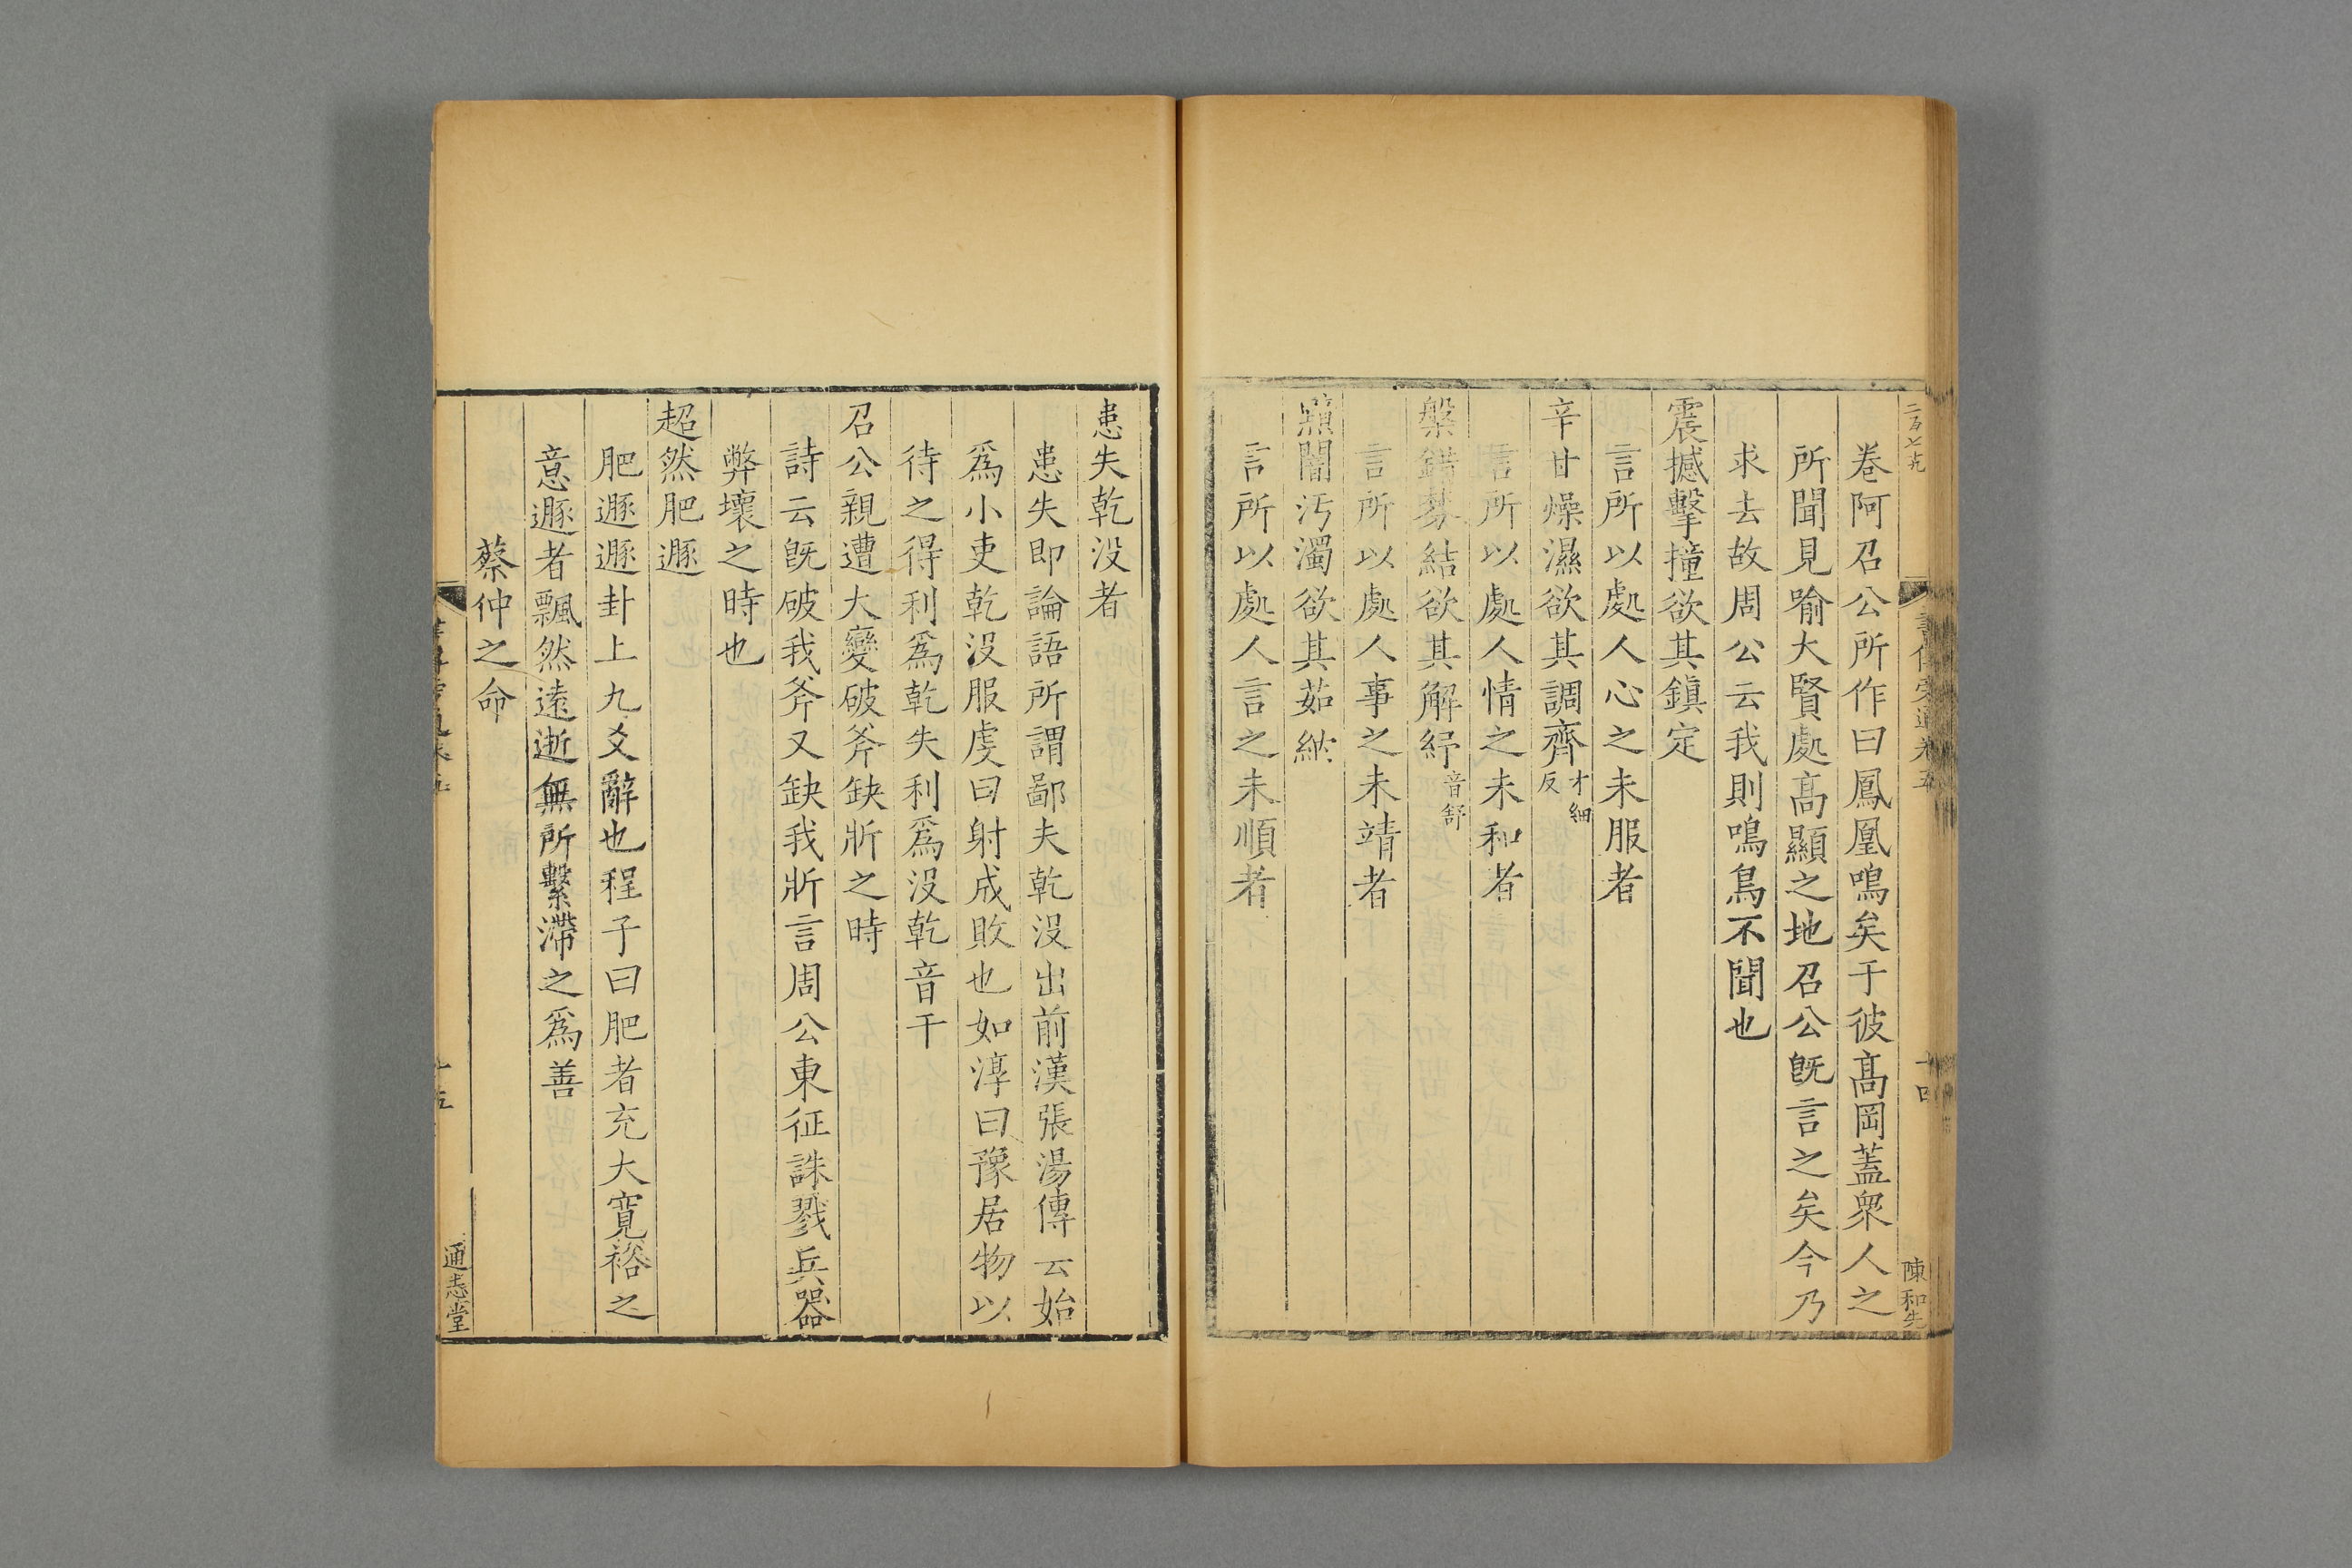 卷阿召公所作曰鳳凰鳴矣于彼髙岡蓋衆人之
所聞見喻大賢處髙顯之地召公旣言之矣今乃
求去故周公云我則鳴鳥不聞也
震撼擊撞欲其鎭定
言所以處人心之未服者
辛甘燥濕欲其調齊才細反
言所以處人情之未和者
槃錯棼結欲其解紓音舒
言所以處人事之未靖者
黯闇汚濁欲其茹納
言所以處人言之未順者
陳和先
患失乾没者
患失即論語所謂鄙夫乾没出前漢張湯傳云始
爲小吏乾没服虔曰射成敗也如淳曰豫居物以
待之得利爲乾失利爲没乾音干
召公親遭大變破斧缺斨之時
詩云旣破我斧又缺我斨言周公東征誅戮兵器
弊壞之時也
超然肥遯
肥遯遯卦上九爻辭也程子曰肥者充大寬裕之
意遯者飄然遠逝無所繫滯之爲善
蔡仲之命
通志堂